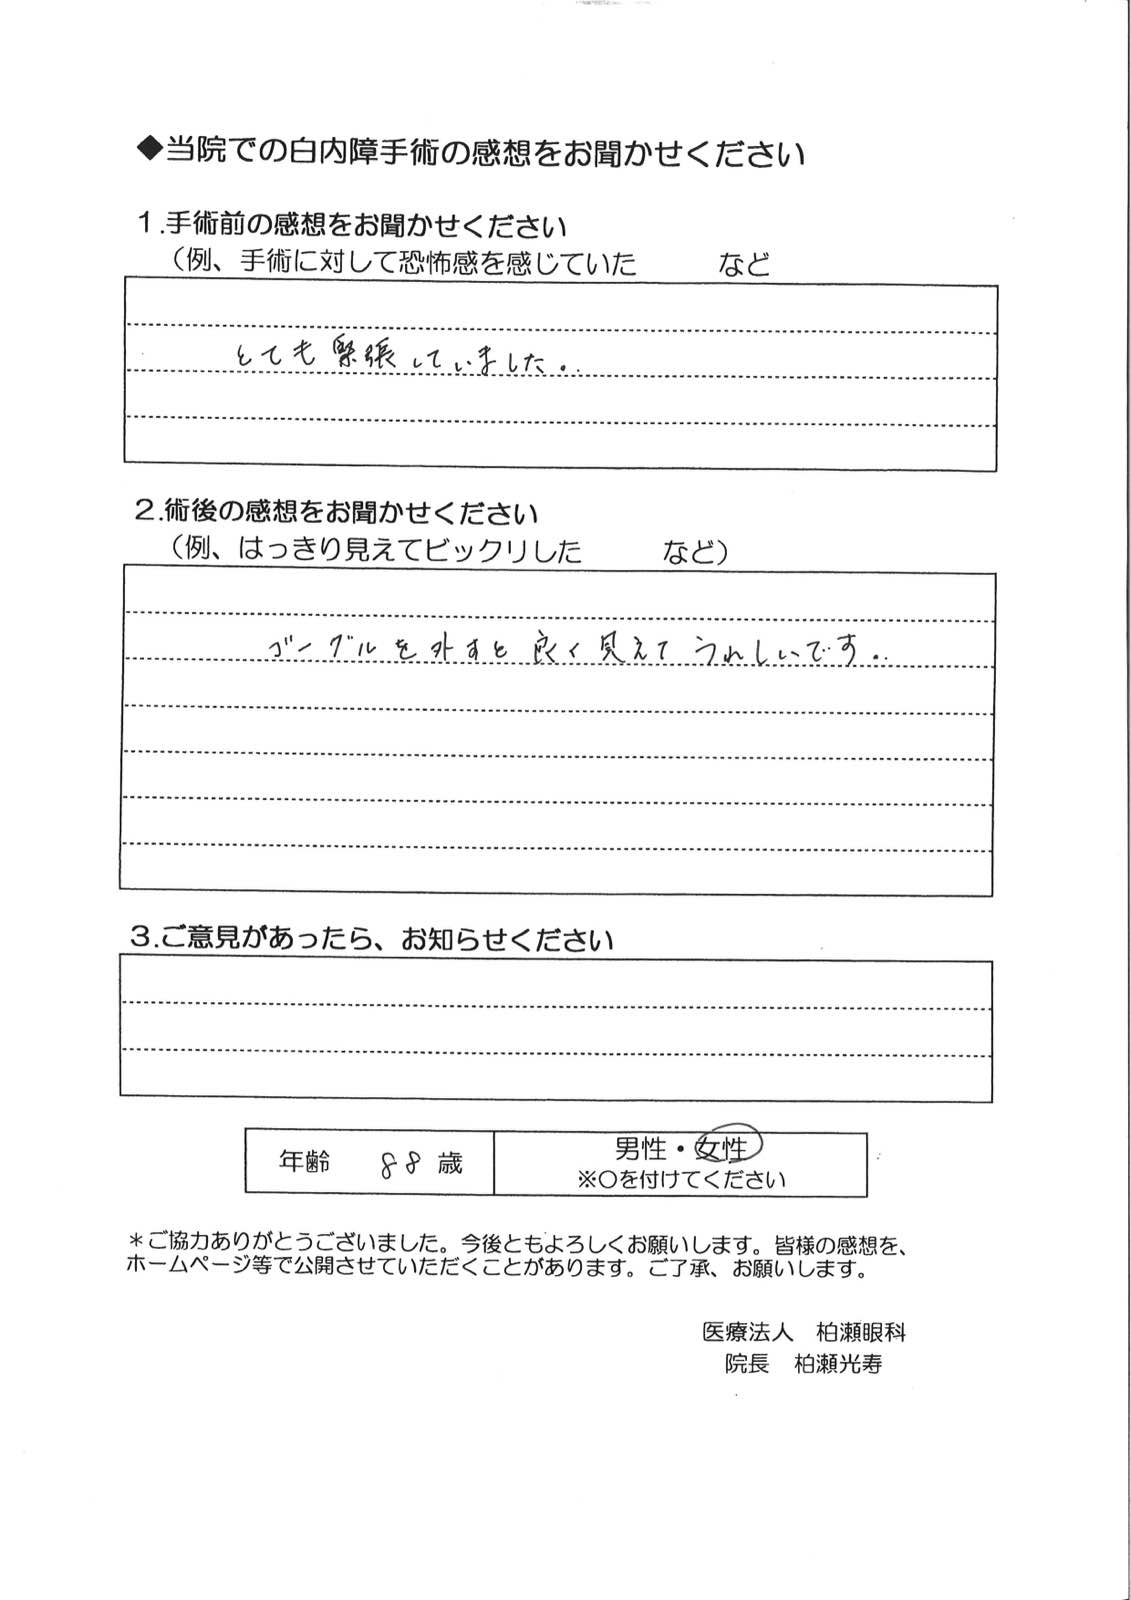 ◆当院での白内障手術の感想をお聞かせください
1.手術前の感想をお聞かせください
（例、手術に対して恐怖感を感じていた　　　など
とても緊張していました。
2.術後の感想をお聞かせください
（例、はっきり見えてビックリした　　　など）
ゴーグルを外すと良く見えてうれしいです。
3.ご意見があったら、お知らせください
年齢　88歳　男性・女性
※○を付けてください
＊ご協力ありがとうございました。今後ともよろしくお願いします。皆様の感想を、
ホームページ等で公開させていただくことがあります。ご了承、お願いします。
医療法人　柏瀬眼科
院長　柏瀬光寿